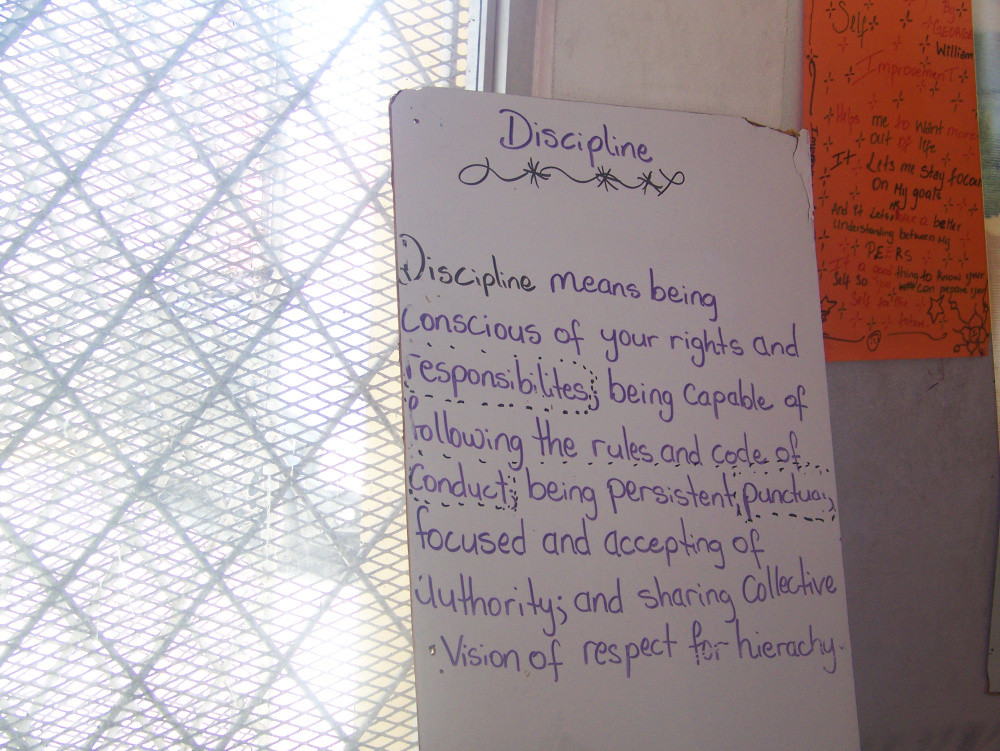 Discipline
Discipline means being
conscious of your rights and
responsibilites; being capable of
following the rules and code of
Conduct; being persistent, punctual,
focused and accepting of
authority; and sharing Collective
Vision of respect for hierachy.
Self
By
GEORGE
William
Improvement
Helps me to want more
out of life
It Lets me stay focus
On My goals
And it Lets me have a better
Understanding between My
PEERS
It a good thing to Know your
Self So can prepare your
Self for the
future